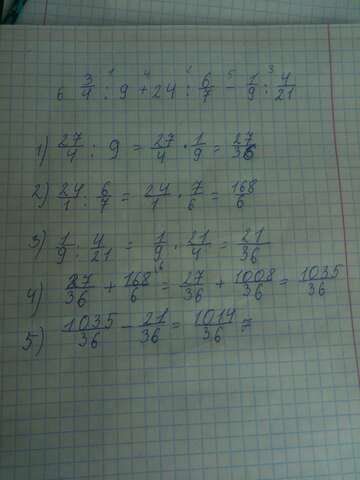 6 3/4 : 9 + 24 : 6/7 − 1/9 : 4/21
1) 27/4 : 9 = 27/4 · 1/9 = 27/36
2) 24/1 : 6/7 = 24/1 · 7/6 = 168/6
3) 1/9 : 4/21 = 1/9 · 21/4 = 21/36
4) 27/36 + 168/6 = 27/36 + 1008/36 = 1035/36
5) 1035/36 − 21/36 = 1014/36 =